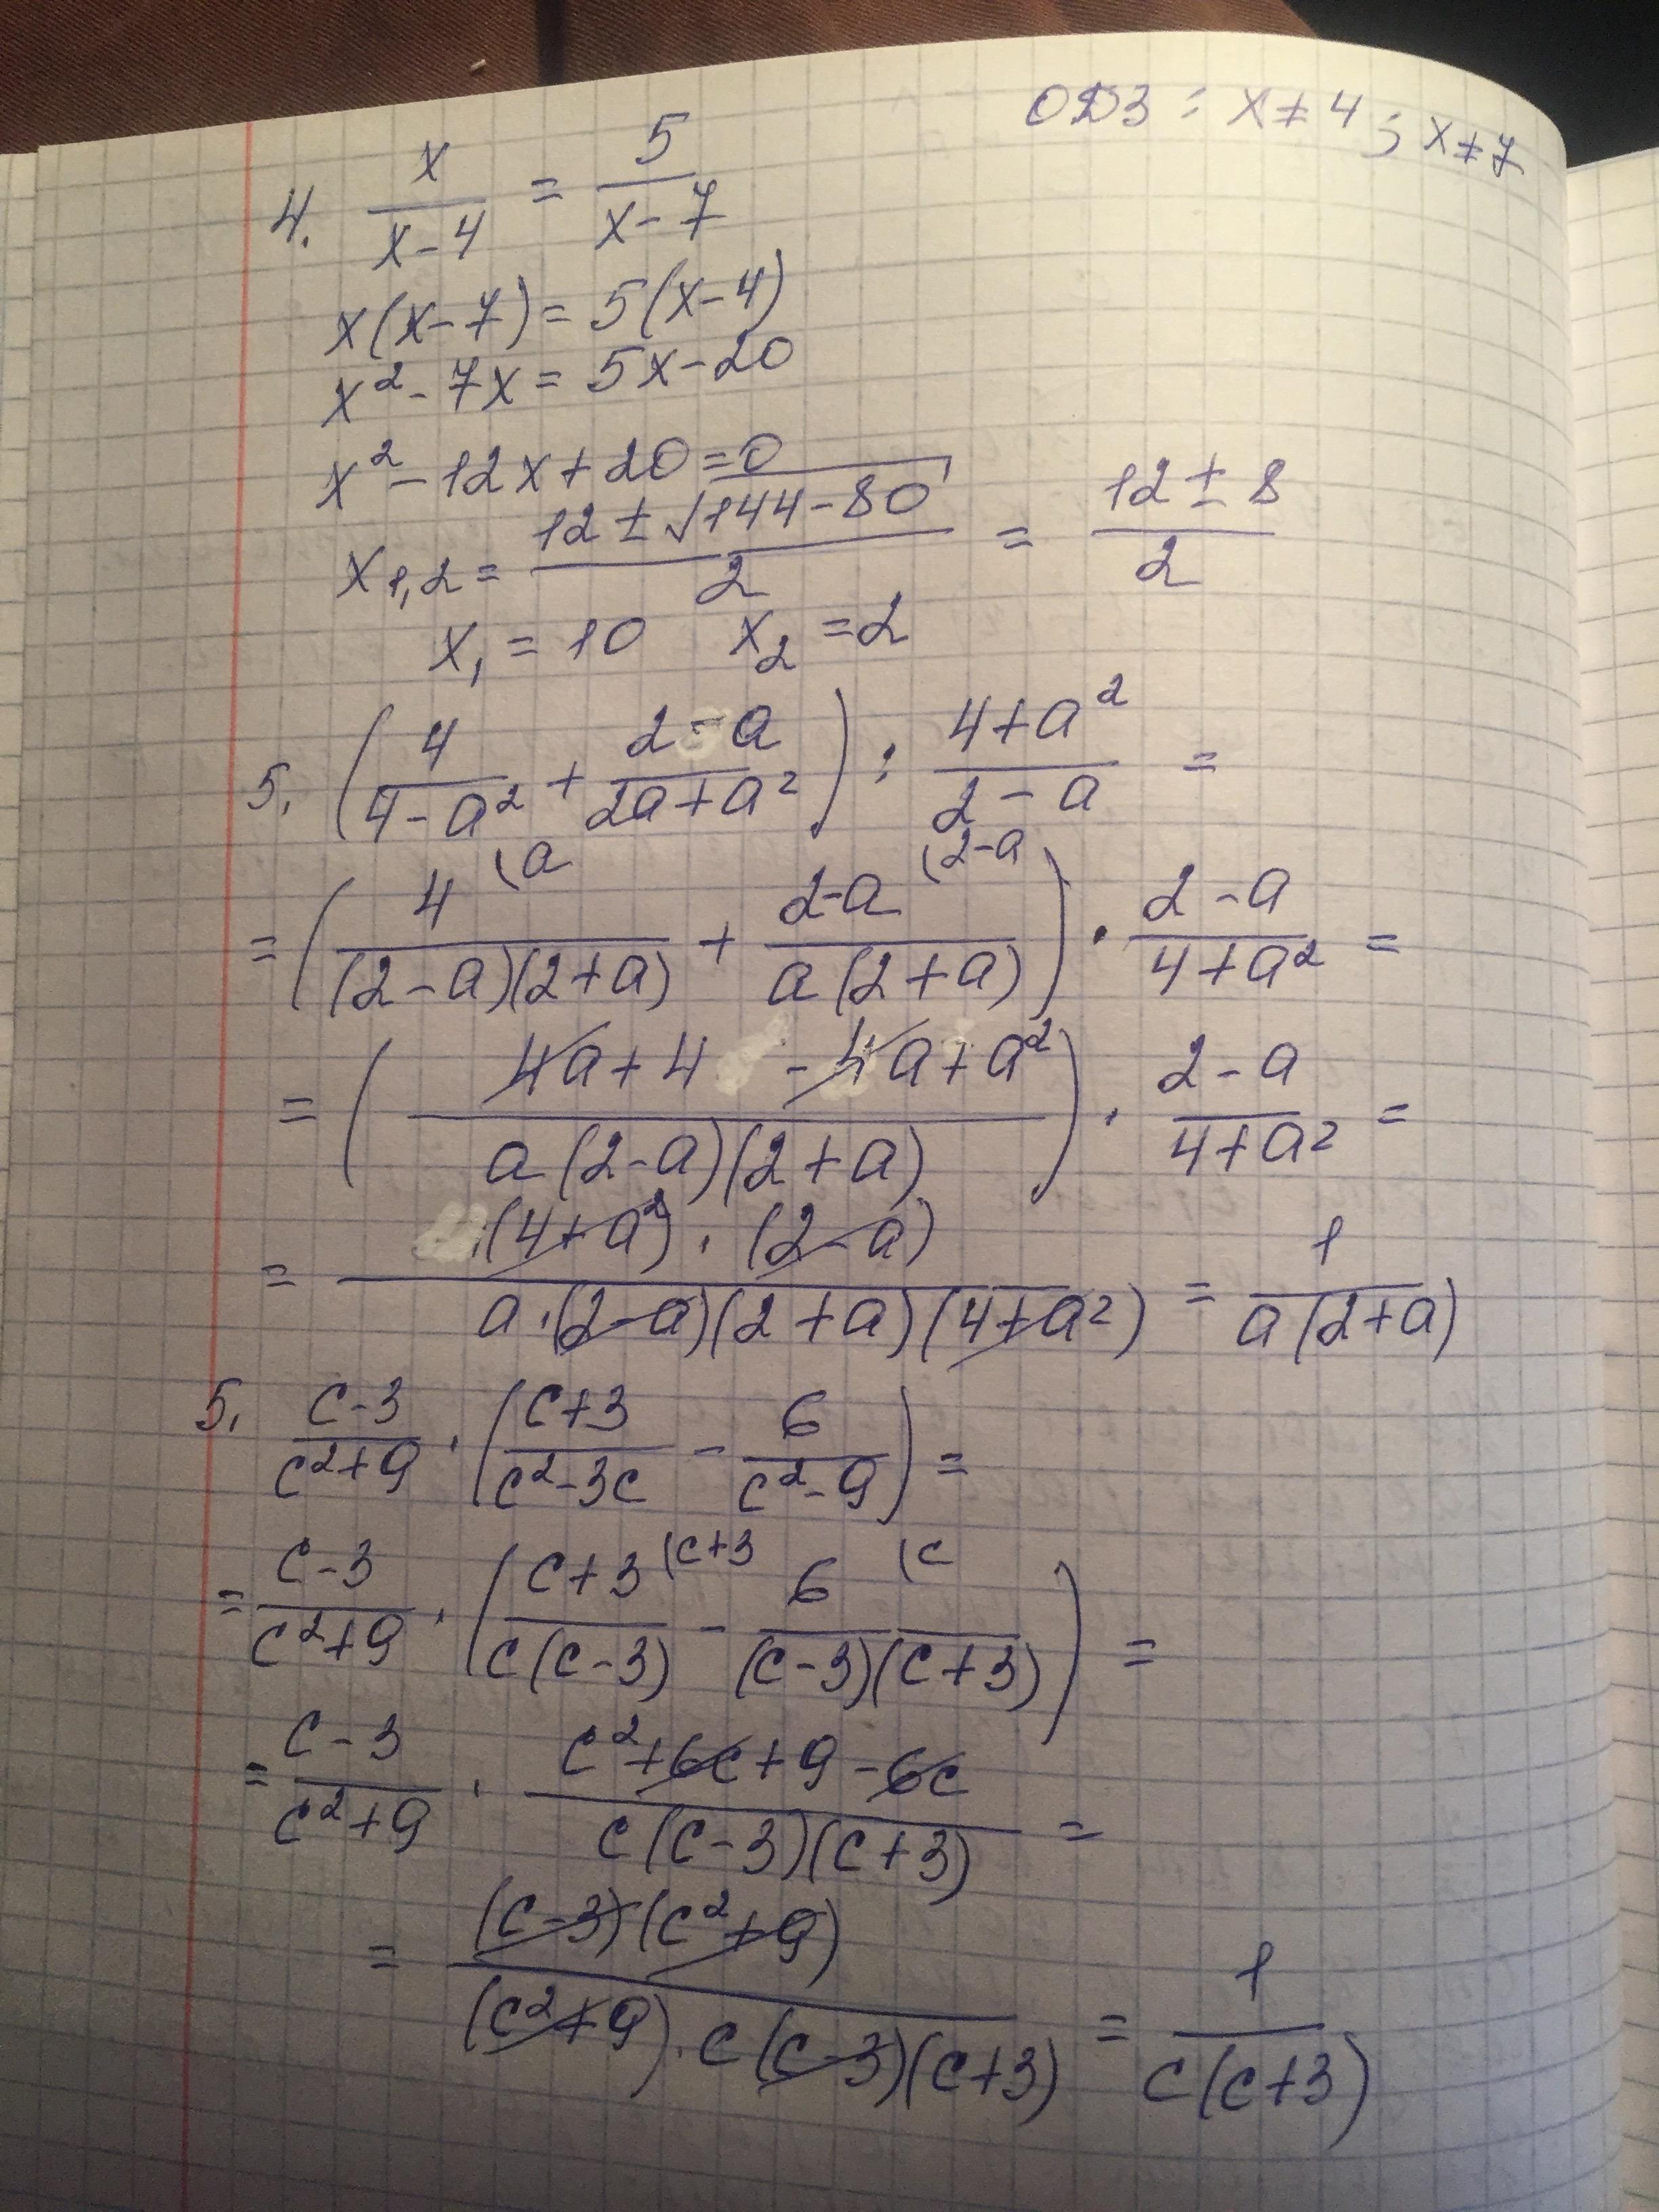 ОДЗ: x ≠ 4; x ≠ 7
4. x/(x-4) = 5/(x-7)
x(x-7) = 5(x-4)
x² - 7x = 5x - 20
x² - 12x + 20 = 0
x₁,₂ = (12 ± √(144-80))/2 = (12 ± 8)/2
x₁ = 10 x₂ = 2
5. (4/(4-a²) + (2-a)/(2a+a²)) : (4+a²)/(2-a) =
= (4/((2-a)(2+a)) (a + (2-a)/(a(2+a)) (2-a) · (2-a)/(4+a²) =
= ((4a+4-4a+a²)/(a(2-a)(2+a))) · (2-a)/(4+a²) =
= ((4+a²)·(2-a))/(a·(2-a)(2+a)(4+a²)) = 1/(a(2+a))
5. (c-3)/(c²+9) · ((c+3)/(c²-3c) - 6/(c²-9)) =
= (c-3)/(c²+9) · ((c+3)/(c(c-3)) (c+3 - 6/((c-3)(c+3)) (c) =
= (c-3)/(c²+9) · (c²+6c+9-6c)/(c(c-3)(c+3)) =
= ((c-3)(c²+9))/((c²+9)·c(c-3)(c+3)) = 1/(c(c+3))